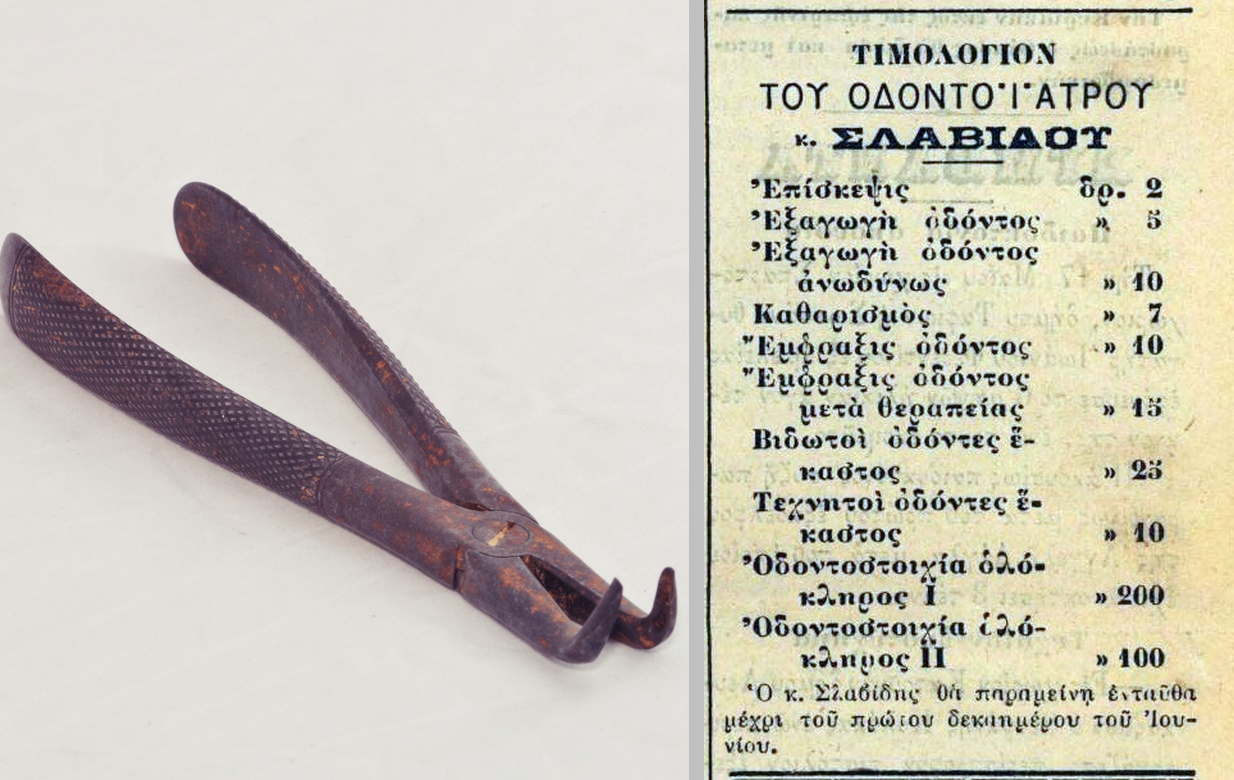 ΤΙΜΟΛΟΓΙΟΝ
ΤΟΥ ΟΔΟΝΤΟΪΑΤΡΟΥ
κ. ΣΛΑΒΙΔΟΥ
Ἐπίσκεψις δρ. 2
Ἐξαγωγὴ ὀδόντος » 5
Ἐξαγωγὴ ὀδόντος
ἀνωδύνως » 10
Καθαρισμὸς » 7
Ἔμφραξις ὀδόντος » 10
Ἔμφραξις ὀδόντος
μετὰ θεραπείας » 15
Βιδωτοὶ ὀδόντες ἕ-
καστος » 25
Τεχνητοὶ ὀδόντες ἕ-
καστος » 10
Ὀδοντοστοιχία ὁλό-
κληρος Ι » 200
Ὀδοντοστοιχία ὁλό-
κληρος ΙΙ » 100
Ὁ κ. Σλαβίδης θὰ παραμείνῃ ἐνταῦθα
μέχρι τοῦ πρώτου δεκαημέρου τοῦ Ἰου-
νίου.